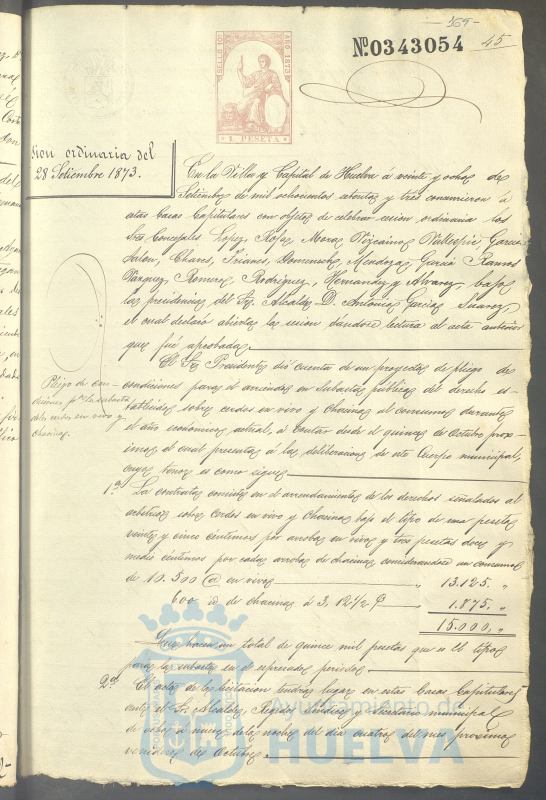 169-
Nº 0343054 45
SELLO 10º
AÑO 1873
1 PESETA
sion ordinaria del
28 Setiembre 1873.
En la Villa y Capital de Huelva á veinte y ocho de
Setiembre de mil ochocientos setenta y tres concurrieron á
estas Casas Capitulares con objeto de celebrar sesion ordinaria los
Sres Concejales Lopez, Rofa, Mora, Vizcaino, Vallespin, Garcia
Jalon, Chares, Trianes, Domenech, Mendoza, Garcia Ramos
Vazquez, Romero, Rodriguez, Hernandez y Alvarez, bajo
la presidencia del Sr. Alcalde D. Antonio Garcia Suarez,
el cual declaró abierta la sesion dandose lectura al acta anterior
que fué aprobada.
El Sr. Presidente dió cuenta de un proyecto de pliego de
Pliego de con-
diciones pª la subasta
del cerdo en vivo y
chacinas.
condiciones para el arriendo en subasta pública del derecho es-
tablecido sobre cerdos en vivo y chacinas al consumo durante
el año económico actual, á contar desde el quince de Octubre prox-
imo el cual presenta á la deliberacion de este Cuerpo municipal,
cuyo tenor es como sigue
1ª La contrata consiste en el arrendamiento de los derechos señalados al
sobre Cerdos en vivo y Chacinas bajo el tipo de una peseta
veinte y cinco centimos por arroba en vivo y tres pesetas doce y
medio centimos por cada arroba de chacina, considerandose un consumo
de 10.500 @ en vivo 13.125. "
600 id de chacinas á 3,12 1/2 P 1.875. "
15.000, "
Que hacen un total de quince mil pesetas que es el tipo
para la subasta en el espresado periodo
2ª El acto de la licitacion tendrá lugar en estas Casas Capitulares
ante el Sr. Alcalde, Regidor Síndico y Secretario municipal
de ocho á nueve de la noche del dia cuatro del mes proximo
venidero de Octubre.
Ayuntamiento de
HUELVA